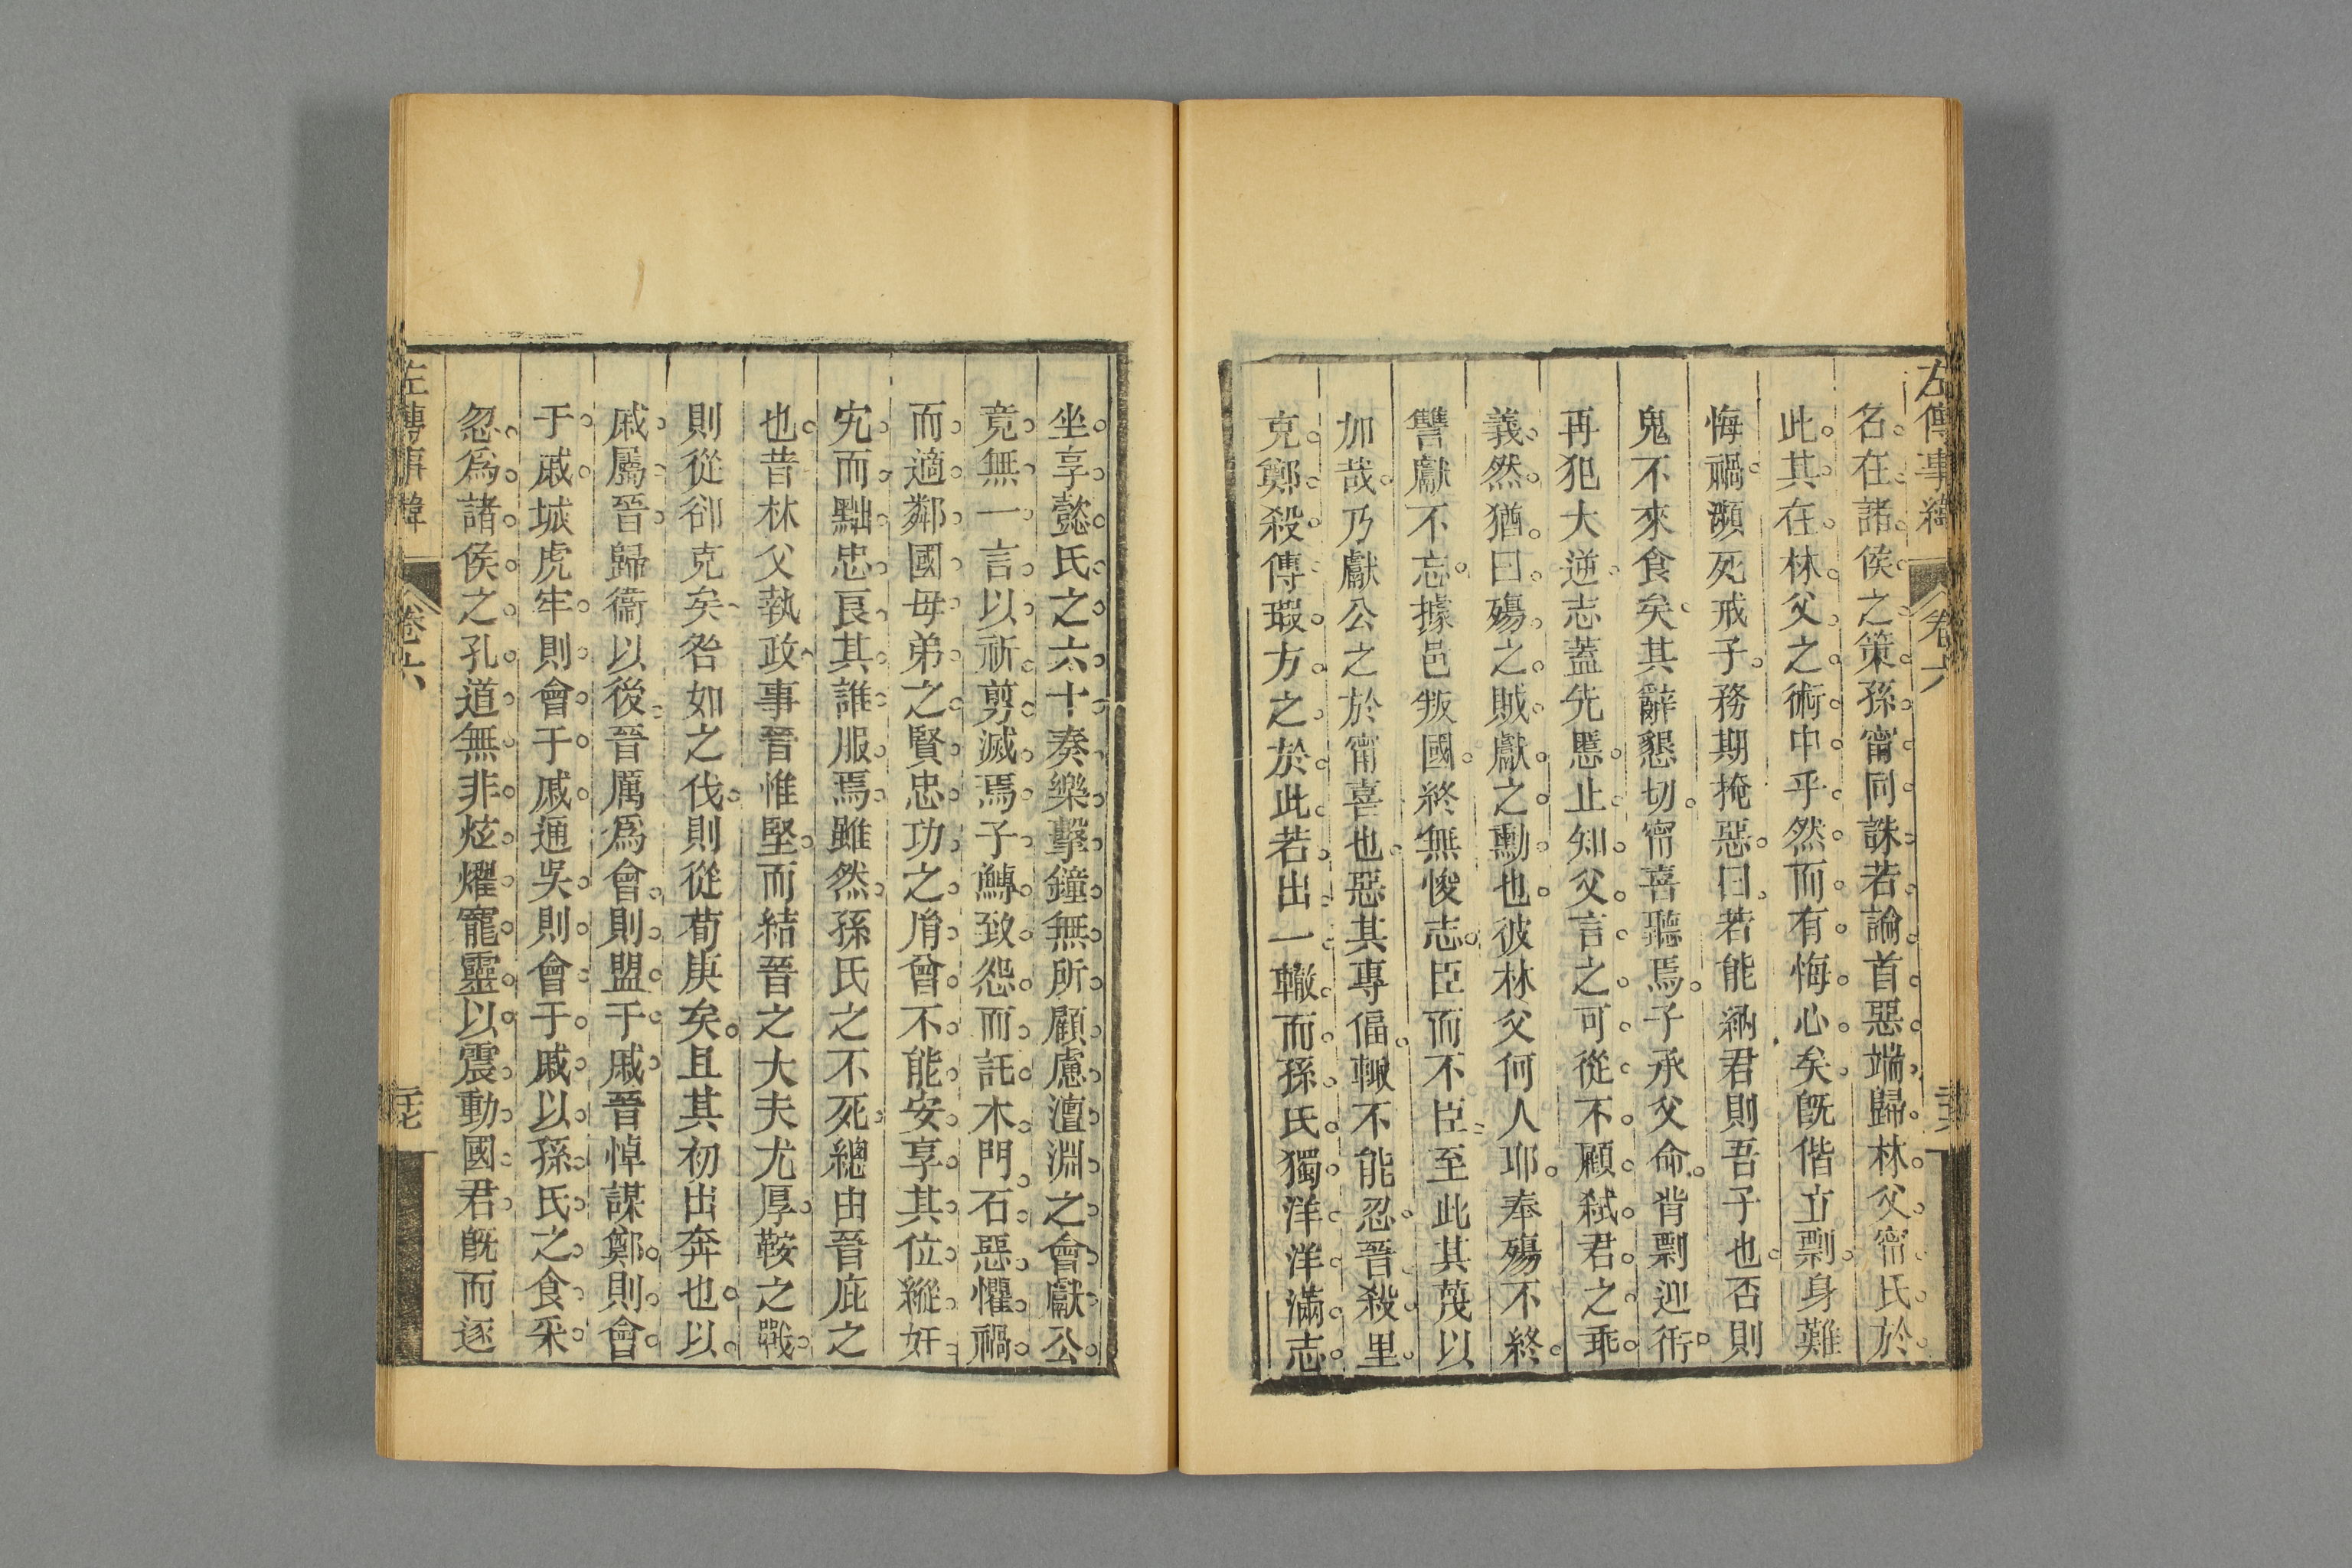 左傳事緯
卷六
名在諸侯之策孫甯同誅若論首惡端歸林父甯氏於
此其在林父之術中乎然而有悔心矣旣偕立剽身難
悔禍瀕死戒子務期掩惡曰若能納君則吾子也否則
鬼不來食矣其辭懇切甯喜聽焉子承父命背剽迎衎
再犯大逆志蓋先慝止知父言之可從不顧弒君之乖
義然猶曰殤之賊獻之勳也彼林父何人耶奉殤不終
讐獻不忘據邑叛國終無悛志臣而不臣至此其蔑以
加哉乃獻公之於甯喜也惡其專偪輙不能忍晉殺里
克鄭殺傅瑕方之於此若出一轍而孫氏獨洋洋滿志
坐享懿氏之六十奏樂擊鐘無所顧慮澶淵之會獻公
竟無一言以祈剪滅焉子鱄致怨而託木門石惡懼禍
而適鄰國毋弟之賢忠功之胤曾不能安享其位縱奸
宄而黜忠良其誰服焉雖然孫氏之不死總由晉庇之
也昔林父執政事晉惟堅而結晉之大夫尤厚鞍之戰
則從郤克矣咎如之伐則從荀庚矣且其初出奔也以
戚屬晉歸衞以後晉厲爲會則盟于戚晉悼謀鄭則會
于戚城虎牢則會于戚通吳則會于戚以孫氏之食采
忽爲諸侯之孔道無非炫燿寵靈以震動國君旣而逐
左傳事緯
卷六